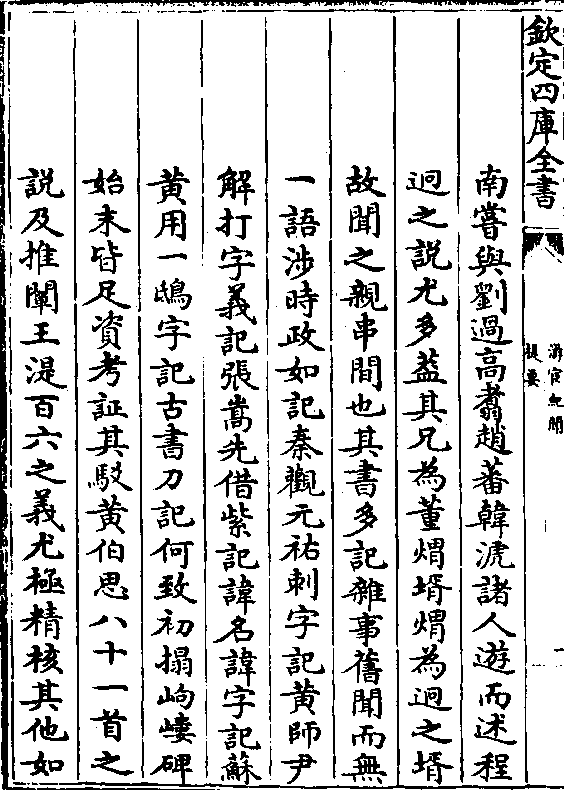 欽定四庫全書
游宦紀聞
提要
一
南嘗與劉過高翥趙蕃韓淲諸人遊而述程
迥之説尤多葢其兄為董煟壻煟為迥之壻
故聞之親串間也其書多記雜事舊聞而無
一語涉時政如記秦觀元祐刺字記黃師尹
解打字義記張嵩先借紫記諱名諱字記蘇
黃用一鴟字記古書刀記何致初搨岣嶁碑
始末皆足資考証其駁黃伯思八十一首之
説及推闡王湜百六之義尤極精核其他如